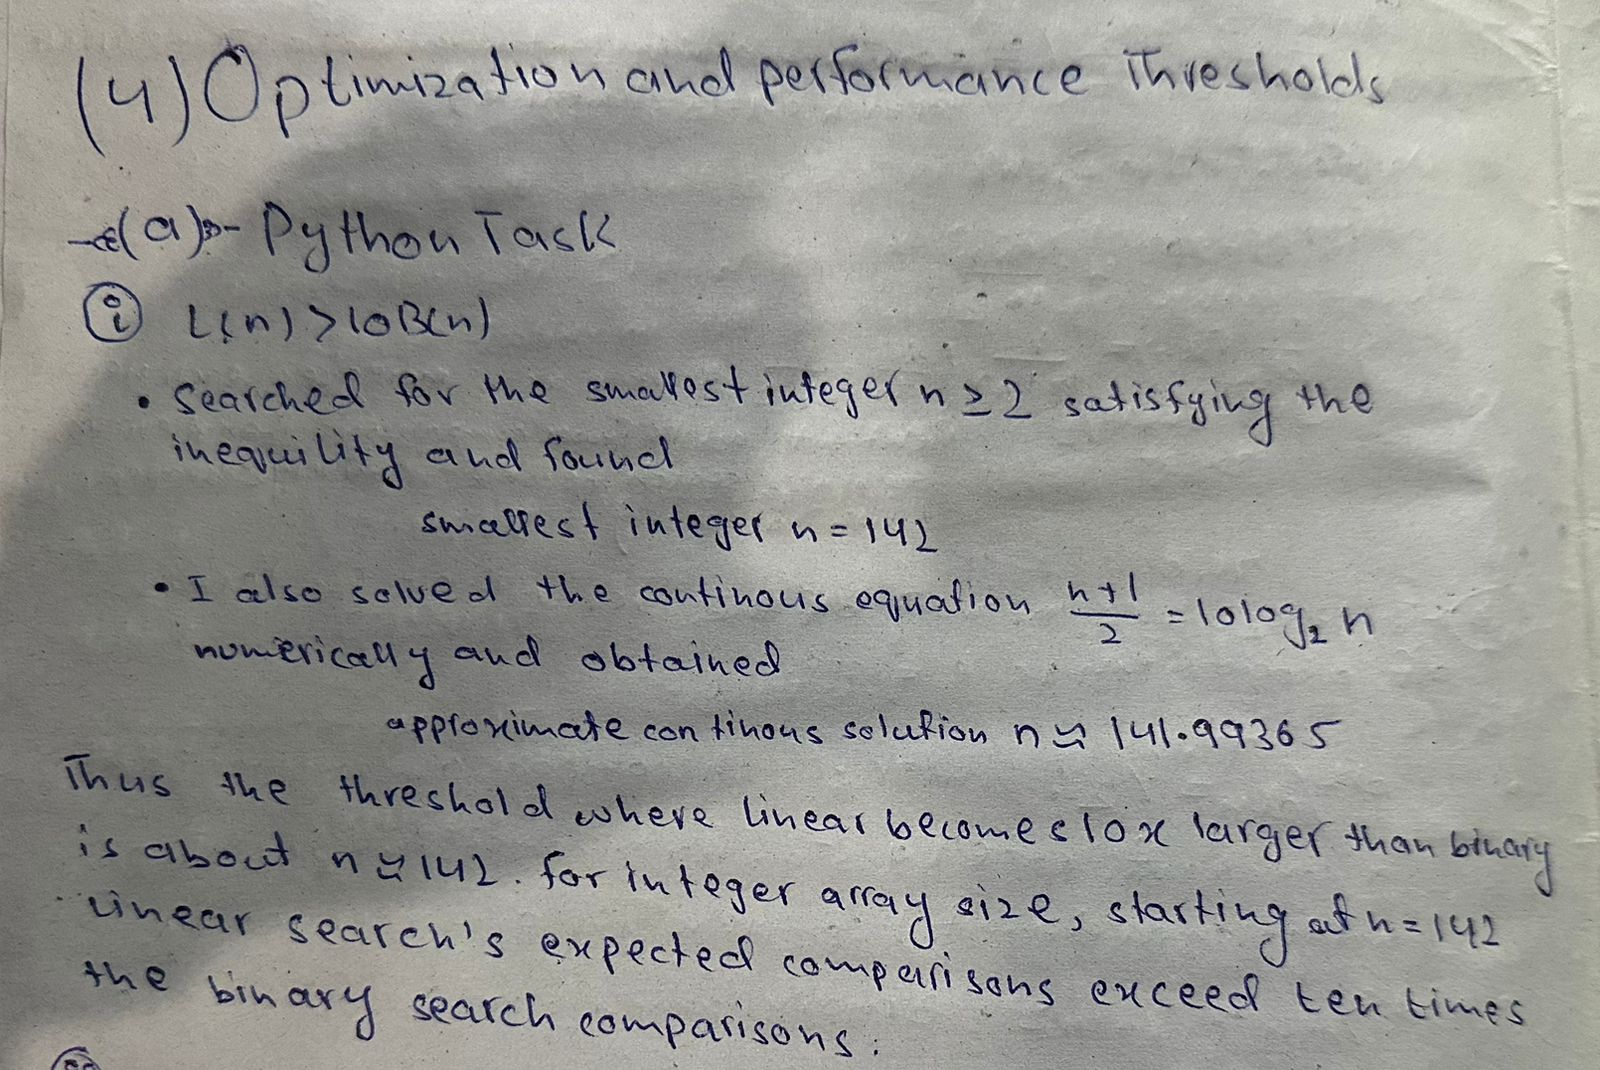 (4) Optimization and performance Thresholds
(a) - Python Task
(i) L(n) > 10B(n)
• Searched for the smallest integer n ≥ 2 satisfying the
inequility and found
smallest integer n = 142
• I also solved the continous equation (n+1)/2 = 10log₂ n
numerically and obtained
approximate continous solution n ≈ 141.99365
Thus the threshold where linear becomes 10x larger than binary
is about n ≈ 142. for integer array size, starting at n = 142
linear search's expected comparisons exceed ten times
the binary search comparisons.